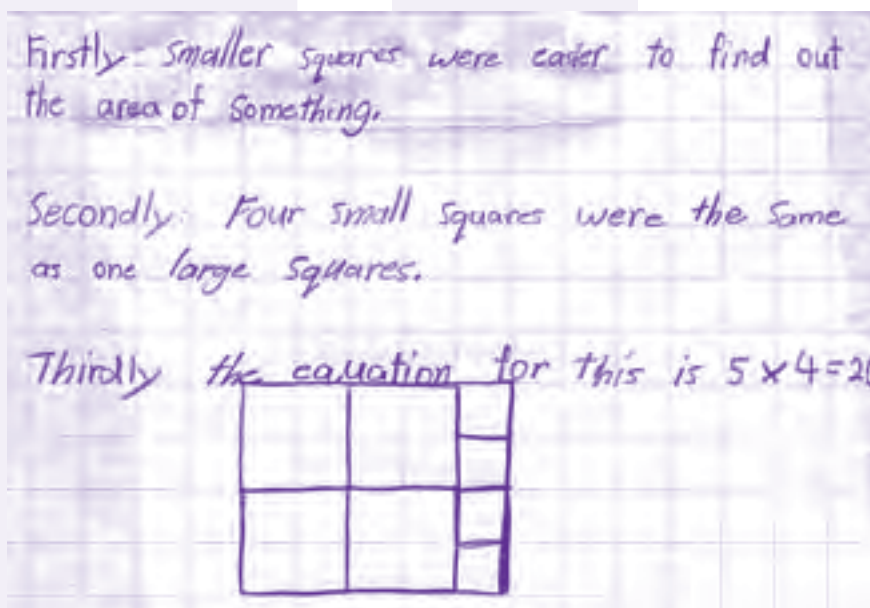 Firstly: Smaller squares were easier to find out
the area of something.
Secondly: Four small squares were the same
as one large squares.
Thirdly the equation for this is 5 x 4 = 20